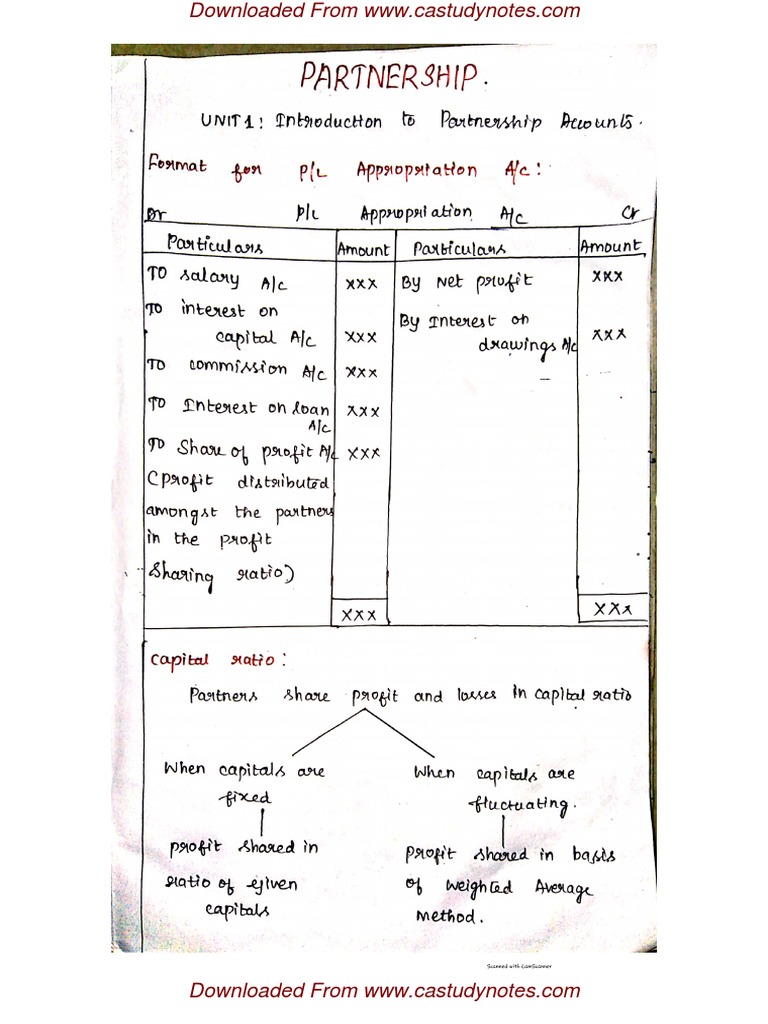 Downloaded From www.castudynotes.com
PARTNERSHIP.
UNIT 1: Introduction to Partnership Accounts.
Format for P/L Appropriation A/c:
Dr P/L Appropriation A/c Cr
Particulars Amount Particulars Amount
To salary A/c xxx By Net profit xxx
To interest on
capital A/c xxx By Interest on
drawings A/c xxx
To commission A/c xxx
To Interest on loan xxx
A/c
To Share of profit A/c xxx
(profit distributed
amongst the partners
in the profit
sharing ratio)
xxx xxx
Capital ratio:
Partners share profit and losses in capital ratio
When capitals are When capitals are
fixed fluctuating.
profit shared in profit shared in basis
ratio of given of weighted Average
capitals method.
Scanned with CamScanner
Downloaded From www.castudynotes.com